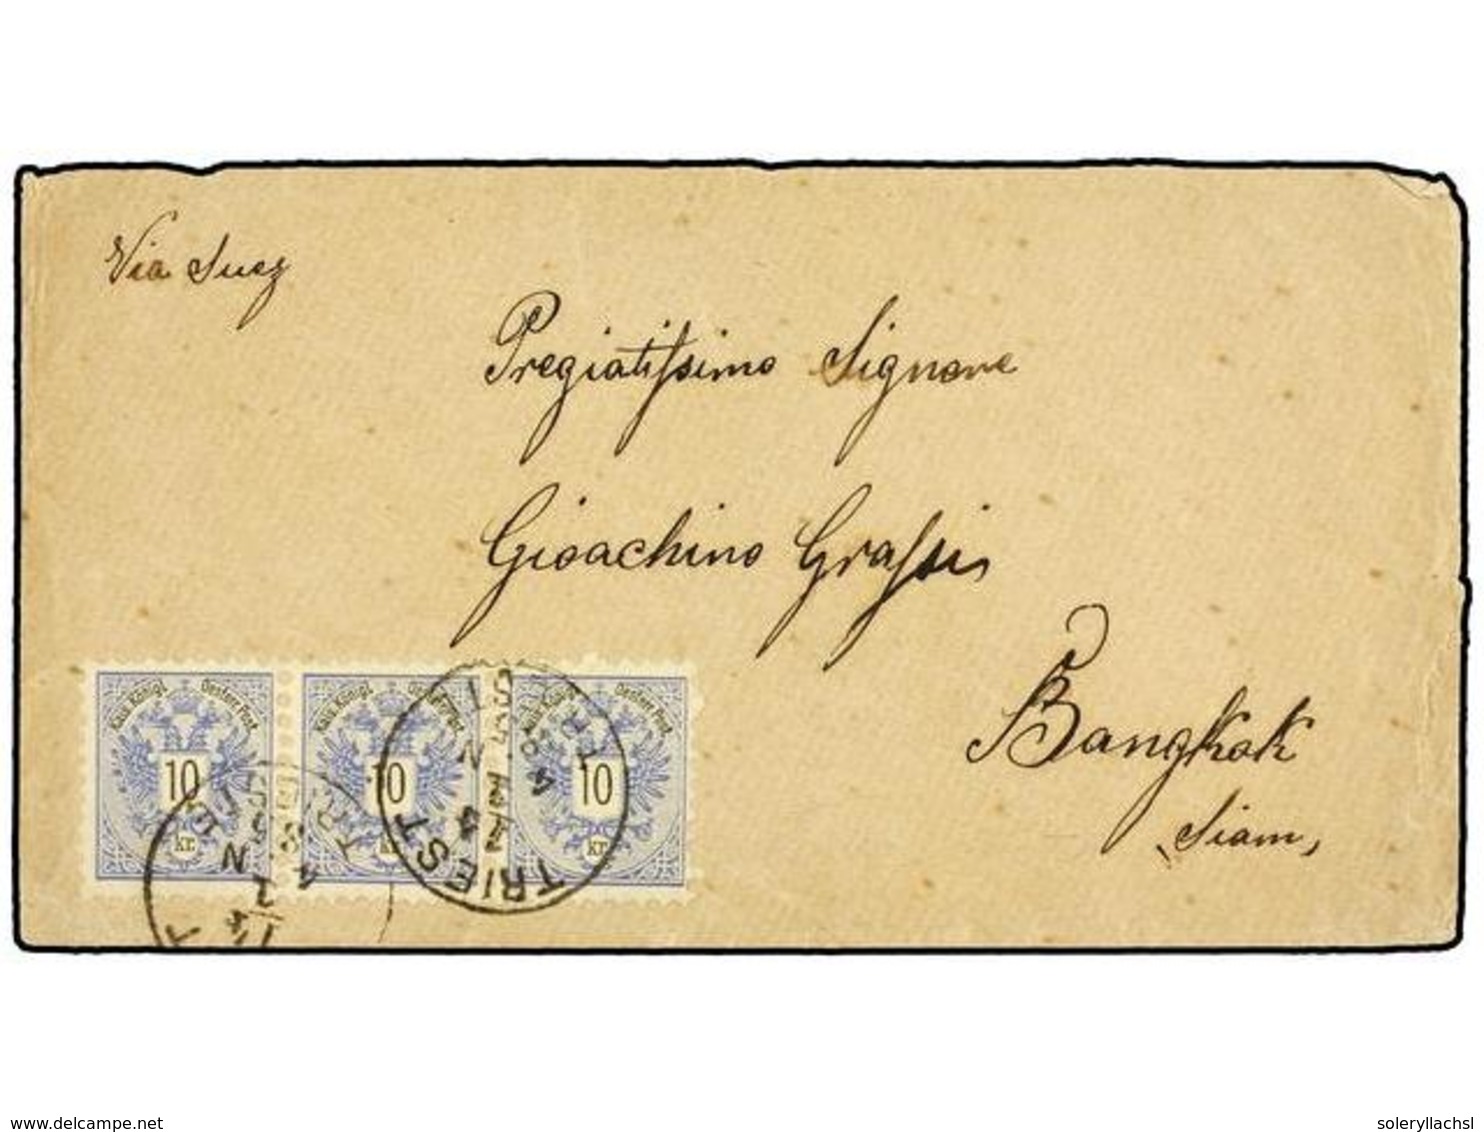 Via Suez
Pregiatissimo Signore
Gioachino Grassi
Bangkok
Siam,
Kais. Königl. Oesterr. Post.
10
kr.
Kais. Königl. Oesterr. Post.
10
kr.
Kais. Königl. Oesterr. Post.
10
kr.
TRIEST
TRIEST
www.delcampe.net
soleryllachsl